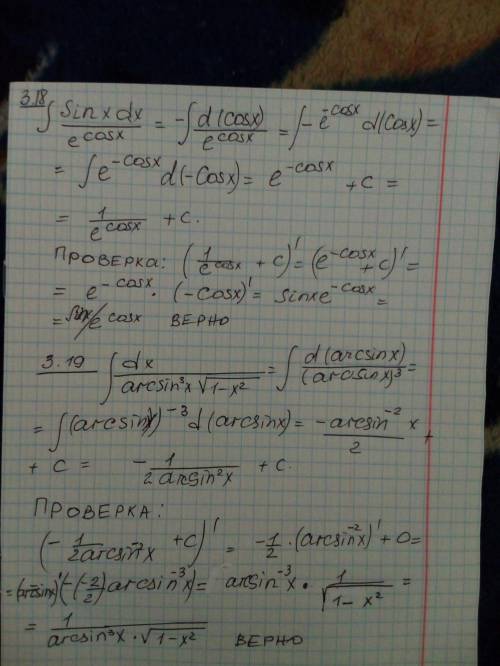 3.18
∫ sinx dx / e^cosx = -∫ d(cosx) / e^cosx = ∫ -e^-cosx d(cosx) =
= ∫ e^-cosx d(-cosx) = e^-cosx + C =
= 1 / e^cosx + C.
ПРОВЕРКА: (1 / e^cosx + C)' = (e^-cosx + C)' =
= e^-cosx · (-cosx)' = sinx e^-cosx =
= sinx / e^cosx ВЕРНО
3.19 ∫ dx / arcsin³x √1-x² = ∫ d(arcsinx) / (arcsinx)³ =
= ∫ (arcsinx)^-3 d(arcsinx) = -arcsin^-2 x / 2 +
+ C = - 1 / 2 arcsin²x + C.
ПРОВЕРКА:
(- 1 / 2arcsin²x + C)' = -1/2 · (arcsin^-2 x)' + 0 =
= (arcsinx)' (-(-2/2) arcsin^-3 x) = arcsin^-3 x · 1 / √1-x² =
= 1 / arcsin³x · √1-x² ВЕРНО